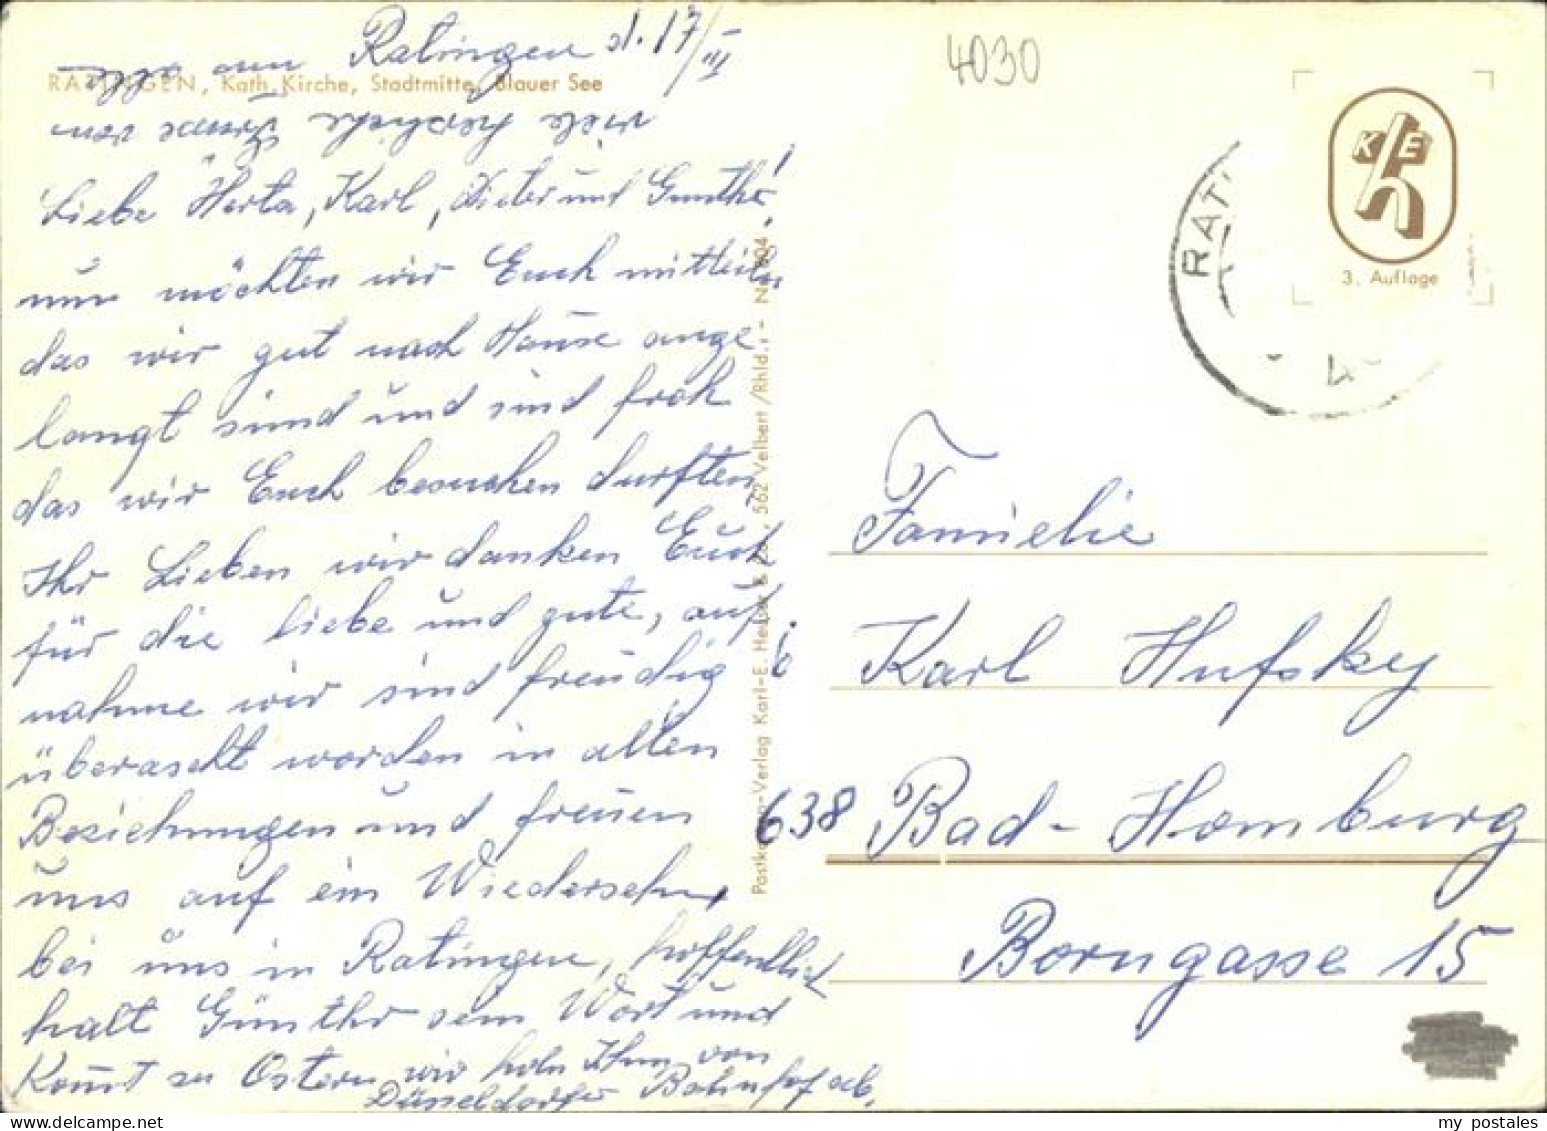 Ratingen d. 17/III
4030
RATINGEN, Kath. Kirche, Stadtmitte, Blauer See
viele herzliche Grüsse von
uns alle
Liebe Herta, Karl, Dieter und Gunther!
nun möchten wir Euch mitteilen
das wir gut nach Hause ange
langt sind und sind froh
das wir Euch besuchen durften
Ihr Lieben wir danken Euch
für die liebe und gute, auf
nahme wir sind freudig
überascht worden in alten
Beziehungen und freuen
uns auf ein Wiedersehn
bei uns in Ratingen, hoffentlich
halt Günthr sein Wort und
Komt zu Ostern wir holn Ihm von
Düsseldorfer Bahnhof ab.
Postkarten-Verlag Karl-E. & Co., 562 Velbert /Rhld. -
KE
3. Auflage
RAT
4
Familie
Karl Hufsky
638 Bad-Homburg
Borngasse 15
my postales